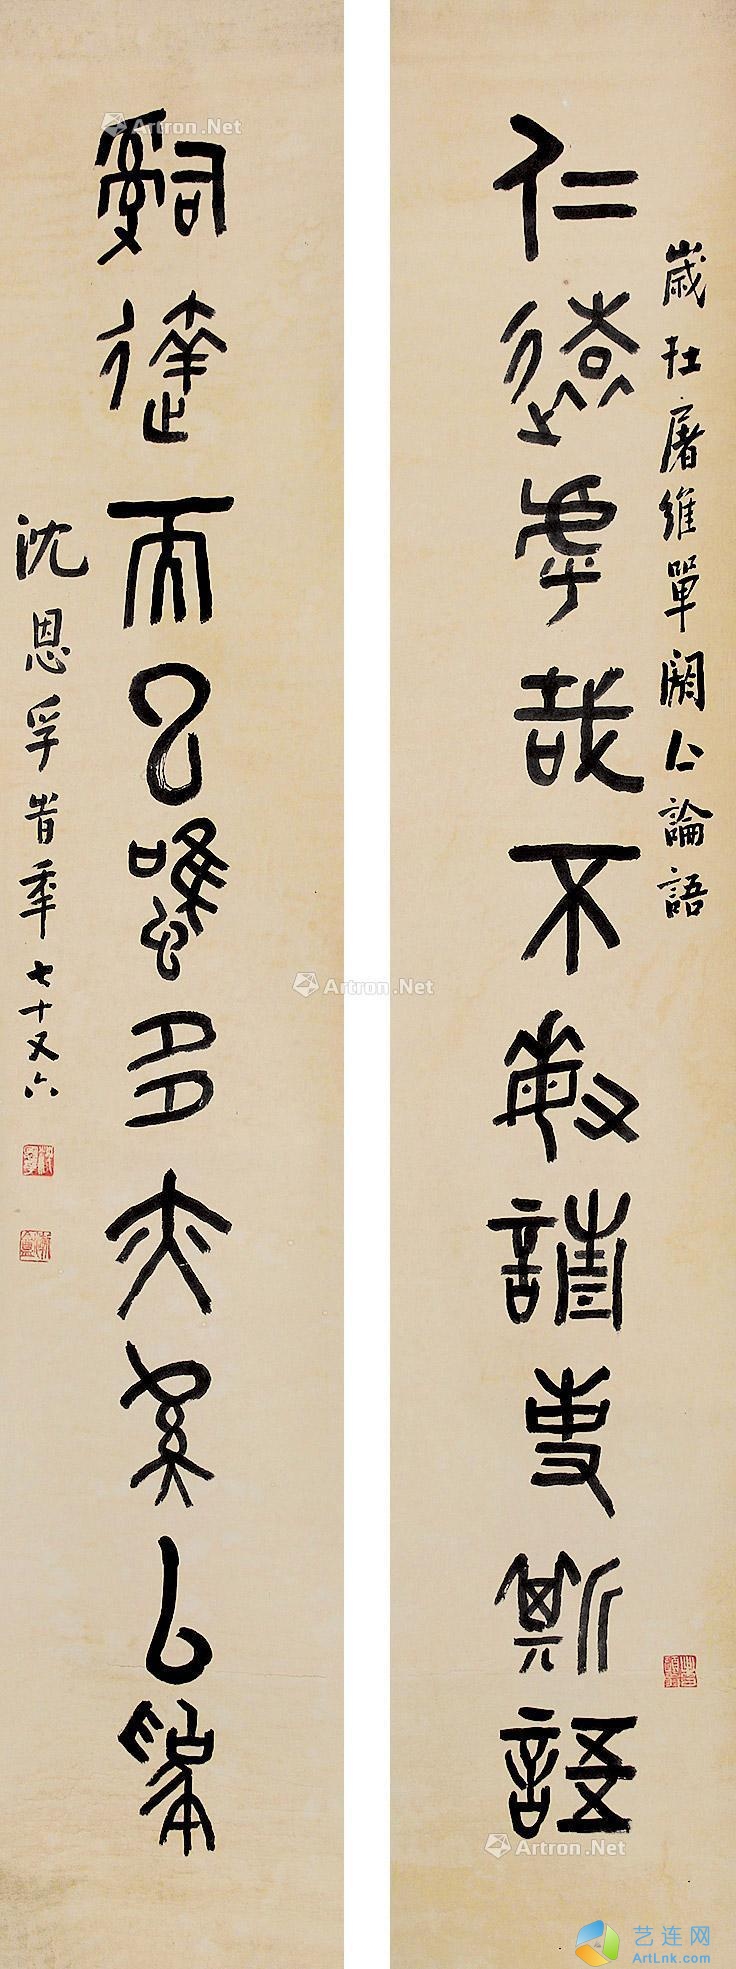 歲在屠維單閼亼論語
仁遠乎哉不敏請事斯語
辭達而已雖多亦奚以為
沈恩孚旹秊七十又六
Artron.Net
Artron.Net
Artron.Net
艺连网
ArtLnk.com